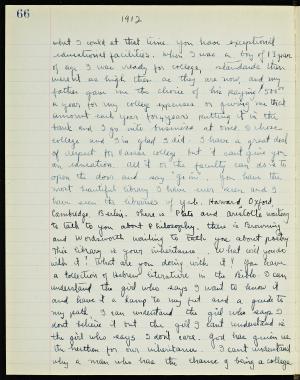 66
1912
what I could at that time. You have exceptional
educational facilities. When I was a boy of 17 years
of age I was ready for college, standards then
weren't as high then as they are now and my
father gave me the choice of his paying $500
a year for my college expenses or giving me that
amount each year for 4 years putting it in the
bank and I go into business at once. I chose
college and I'm glad I did. I have a great deal
of respect for college but it can't give you
an education. All it or the faculty can do is to
open the door and say "go in". You have the
most beautiful library I have ever seen and I
have seen the libraries of Yale, Harvard, Oxford,
Cambridge, Berlin. There is Plato and Aristotle waiting
to talk to you about Philosophy, there is Browning
and Wordsworth waiting to talk to you about poetry
This library is your inheritance. What will you do
with it? What are you doing with it? You have
a collection of Hebrew literature in the Bible. I can
understand the girl who says I want to know it
and have it a lamp to my feet and a guide to
my path. I can understand the girl who says I
don't believe it but the girl I can't understand is
the girl who says I don't care. God has given us
the nation for our inheritance. I can't understand
why a man who has the chance of being a college